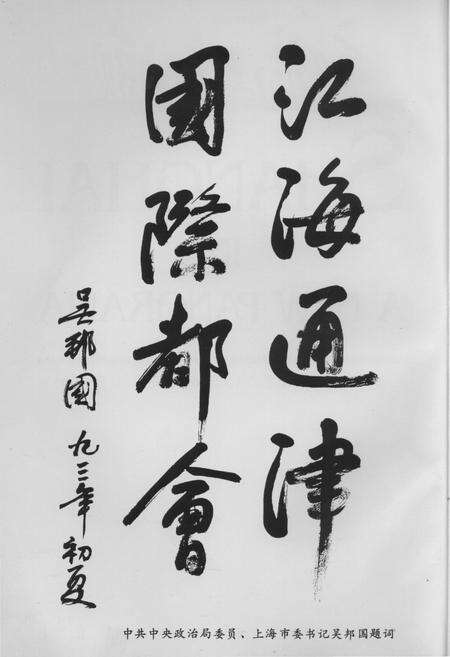 江海通津
國際都會
吴邦國 九三年初夏
中共中央政治局委员、上海市委书记吴邦国题词